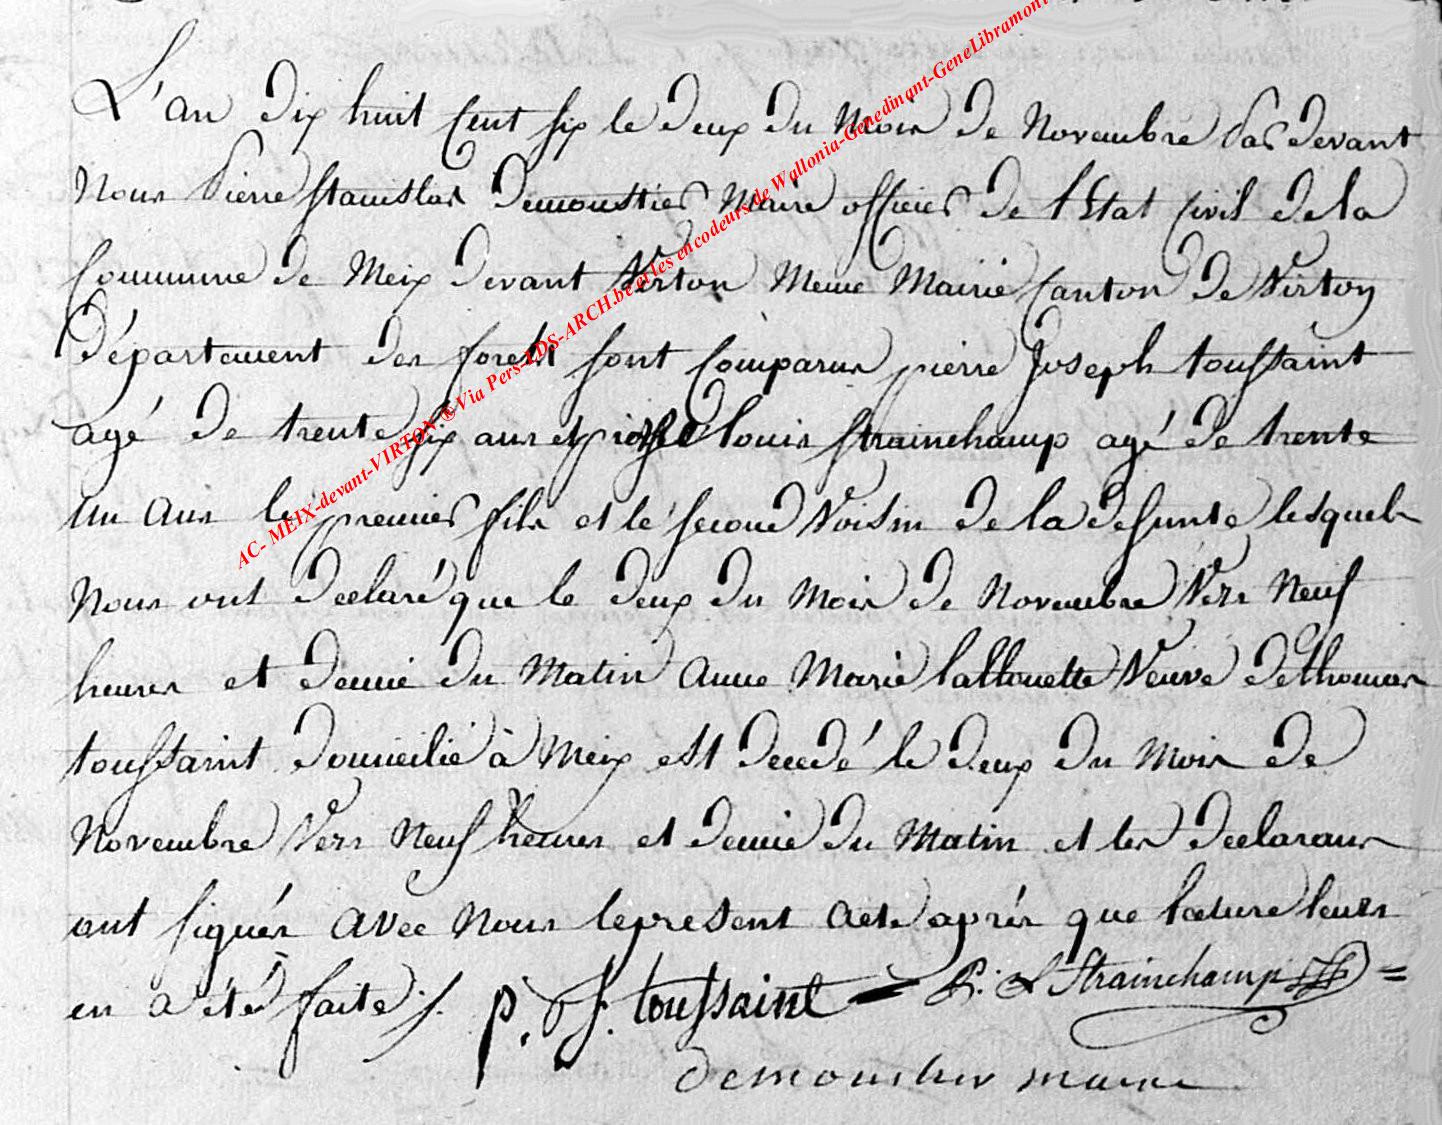 L'an dix huit Cent six le deux du Mois de Novembre Par devant
Nous Pierre Stanislas Demoustier Maire officier de l'Etat Civil de la
Commune de Meix devant Virton Meme Mairie Canton de Virton
Département des forets sont Comparus pierre Joseph toussaint
agé de trente six ans et louis Strainchamp agé de trente
un ans le premier fils et le second Voisin de la defunte lesquels
Nous ont declaré que le deux du Mois de Novembre Vers Neuf
heures et demie du Matin Anne Marie lallouette Veuve de thomas
toussaint domicilié à Meix est decedé le deux du Mois de
Novembre Vers Neuf heures et demie du Matin et les declarans
ont signés avec Nous le present acte aprés que lecture leurs
en a été faite ./. p. J. toussaint P. L Strainchamp
demoustier maire
AC- MEIX-devant-VIRTON®Via Pers-LDS-ARCH.be et les encodeurs de Wallonia-Genedinant-GeneLibramont